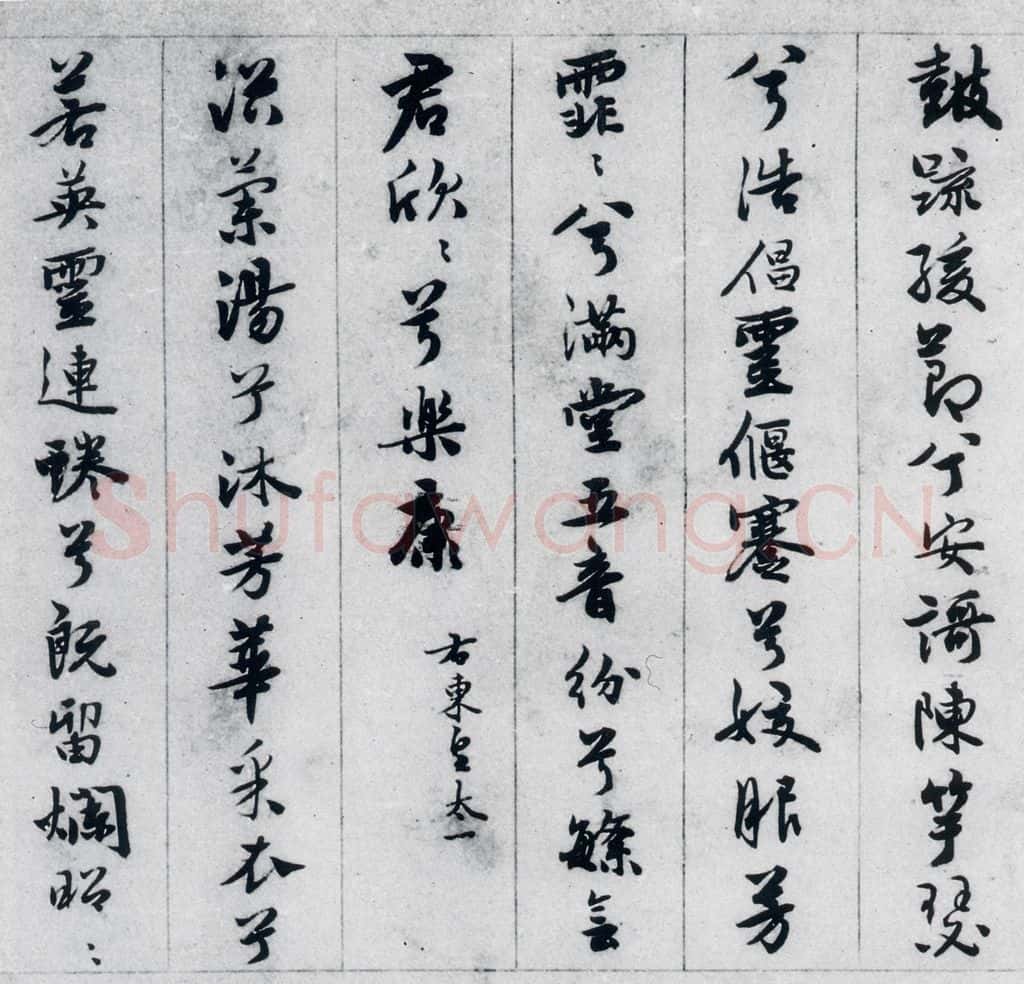 鼓疏緩節兮安謌陳竽瑟
兮浩倡靈偃蹇兮姣服芳
霏〻兮滿堂五音紛兮繁會
君欣〻兮樂康
右東皇太一
浴蘭湯兮沐芳華采衣兮
若英靈連蜷兮既留爛昭〻
Shufawang.CN